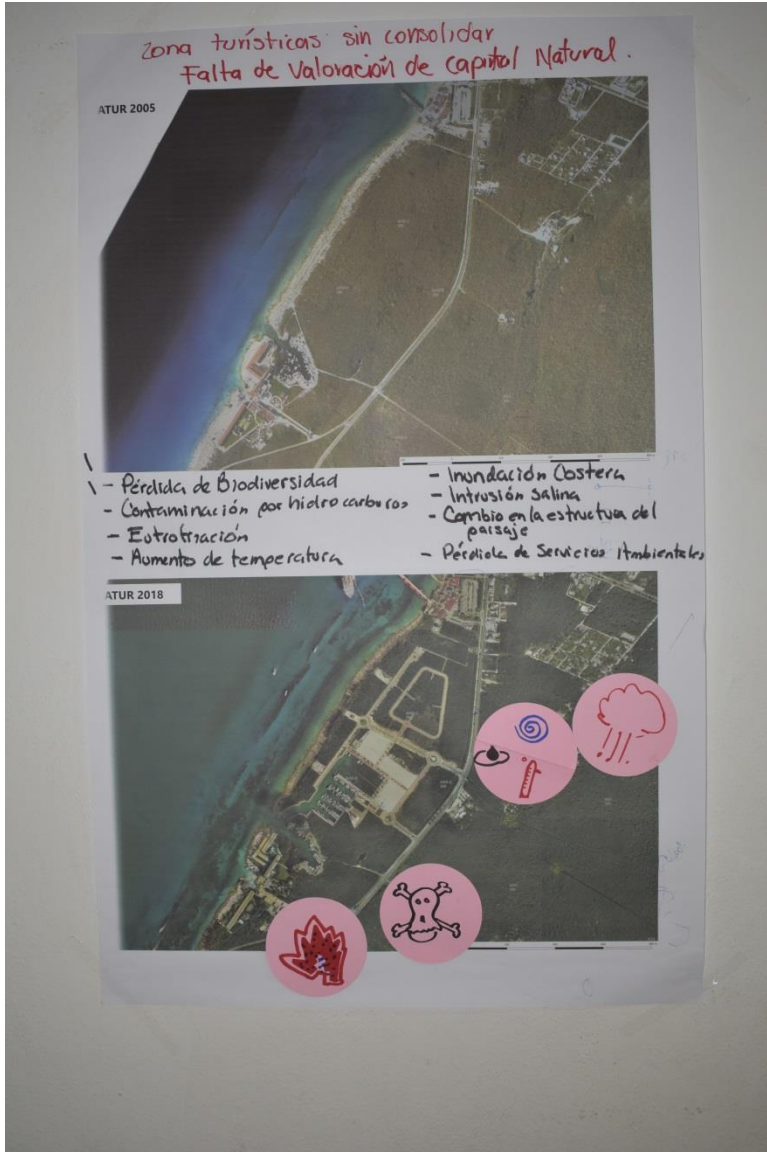 Zona turísticas sin consolidar
Falta de Valoración de capital Natural.
ATUR 2005
- Pérdida de Biodiversidad
- Contaminación por hidrocarburos
- Eutrofización
- Aumento de temperatura
- Inundación Costera
- Intrusión Salina
- Cambio en la estructura del
paisaje
- Pérdida de Servicios Ambientales
ATUR 2018